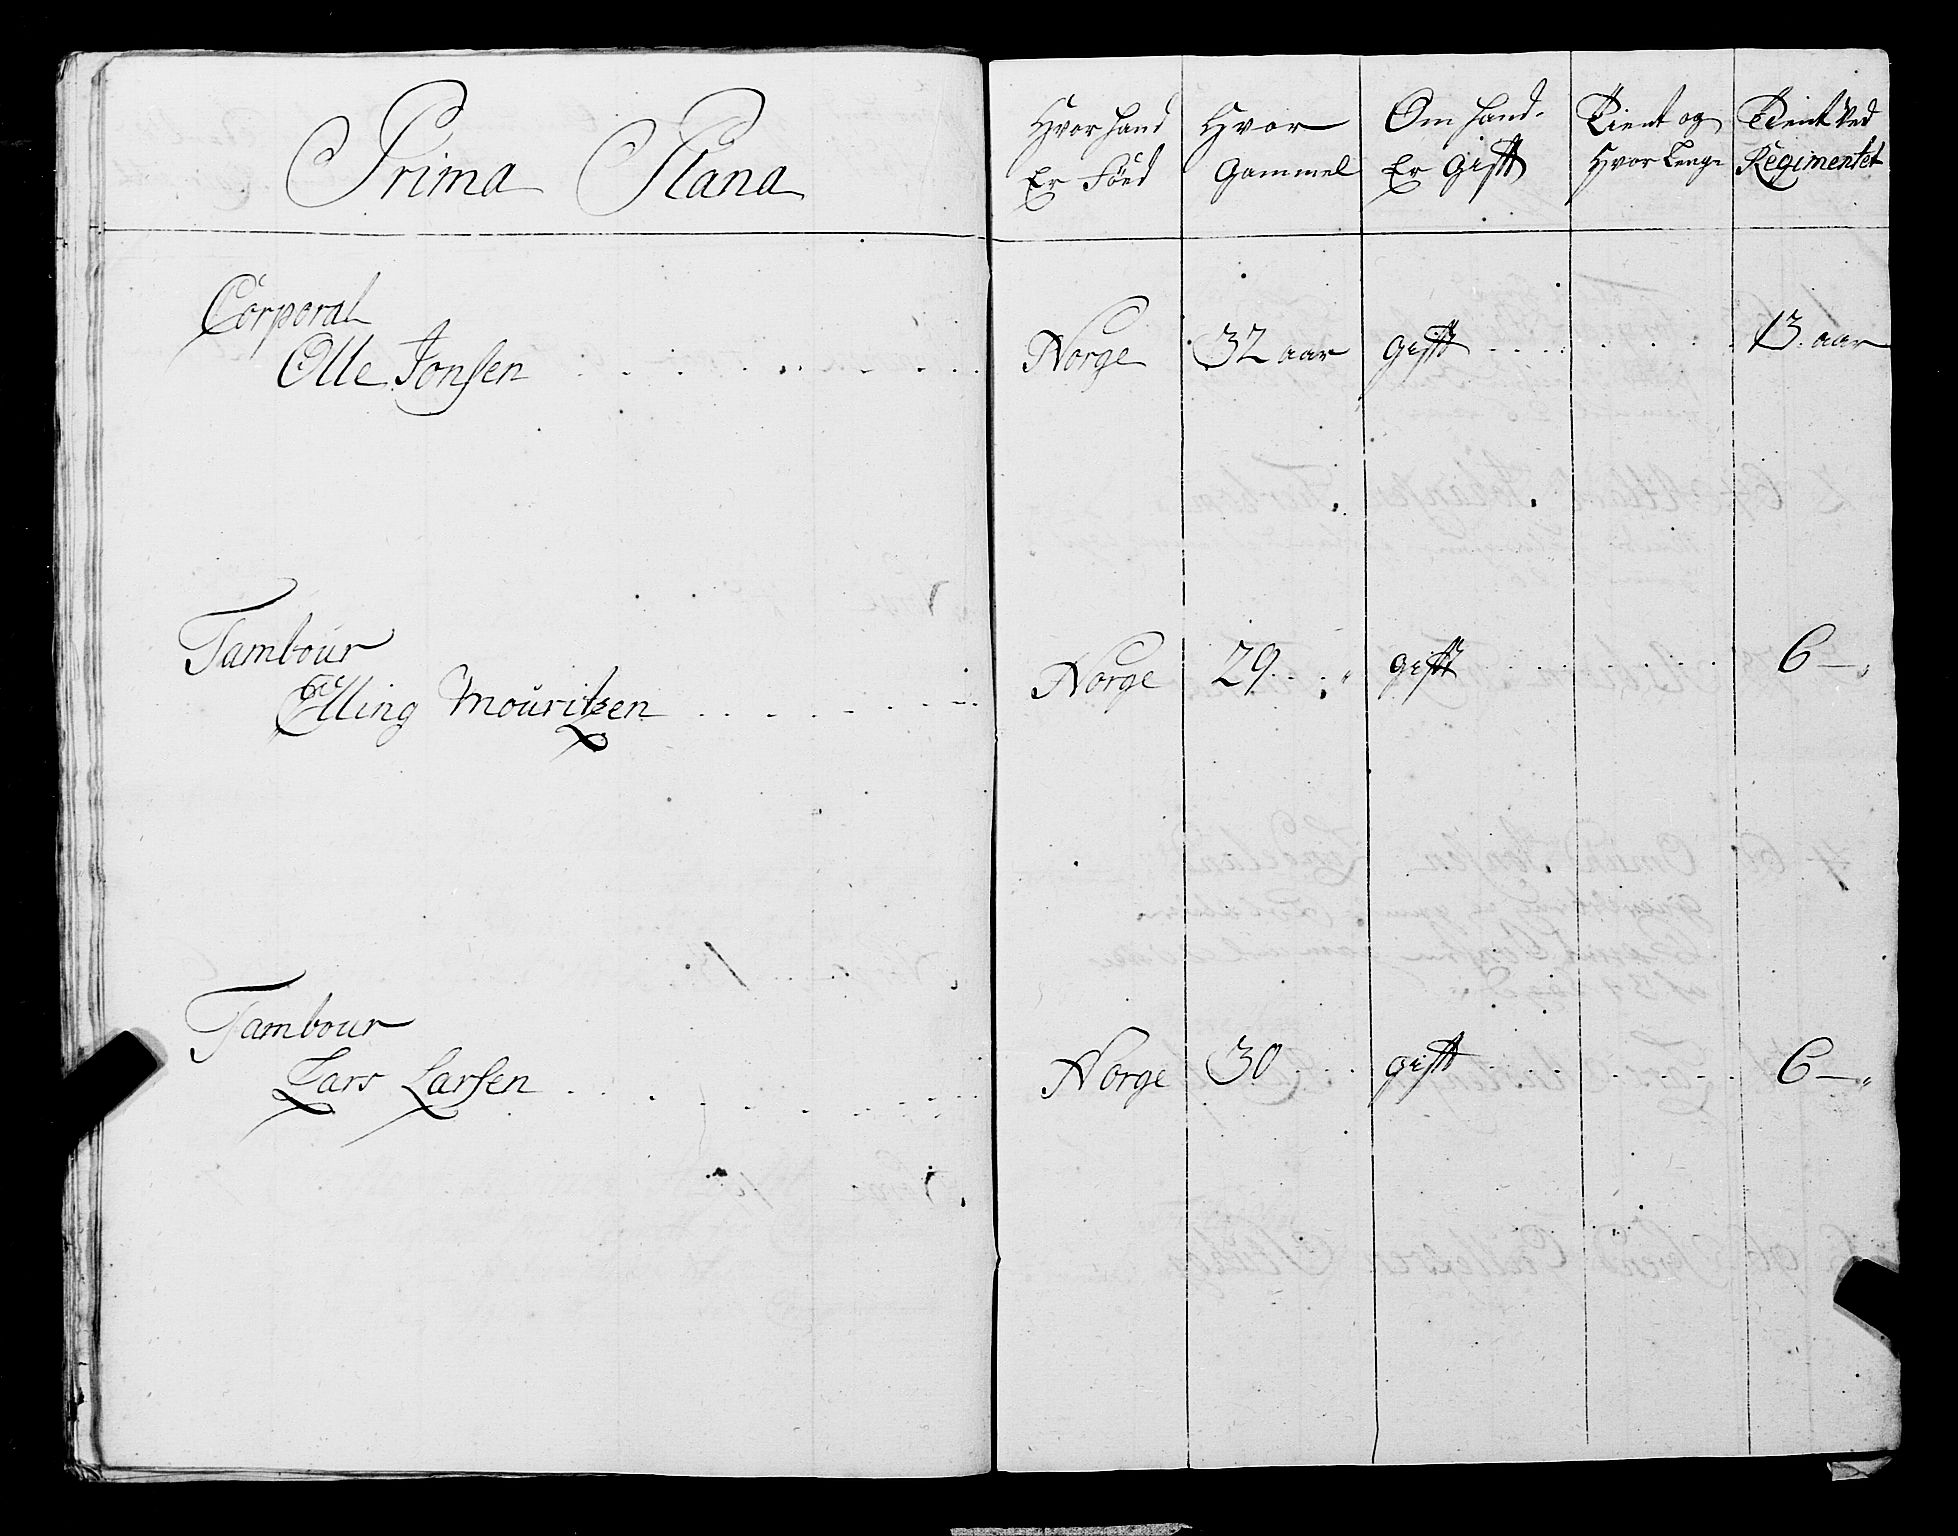 Prima Plana
Hvor hand Er Föed
Hvor gammel
Om hand Er gifft
Tient og Hvor Lenge
Tient Ved Regimentet
Corporal
Olle Jonsen Norge 32 aar gifft 13 aar
Tambour
Elling Mouritzen Norge 29 gifft 6 —"
Tambour
Lars Larsen Norge 30 gifft 6 —"